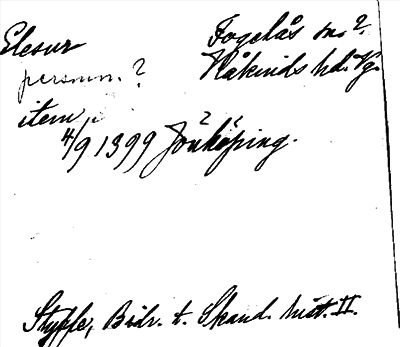 Elesur Fogelås sn?
personn.? Kåkinds hd. Vg.
item,
4/9 1399 Jönköping.
Styffe, Bidr. t. Skand. hist. II.